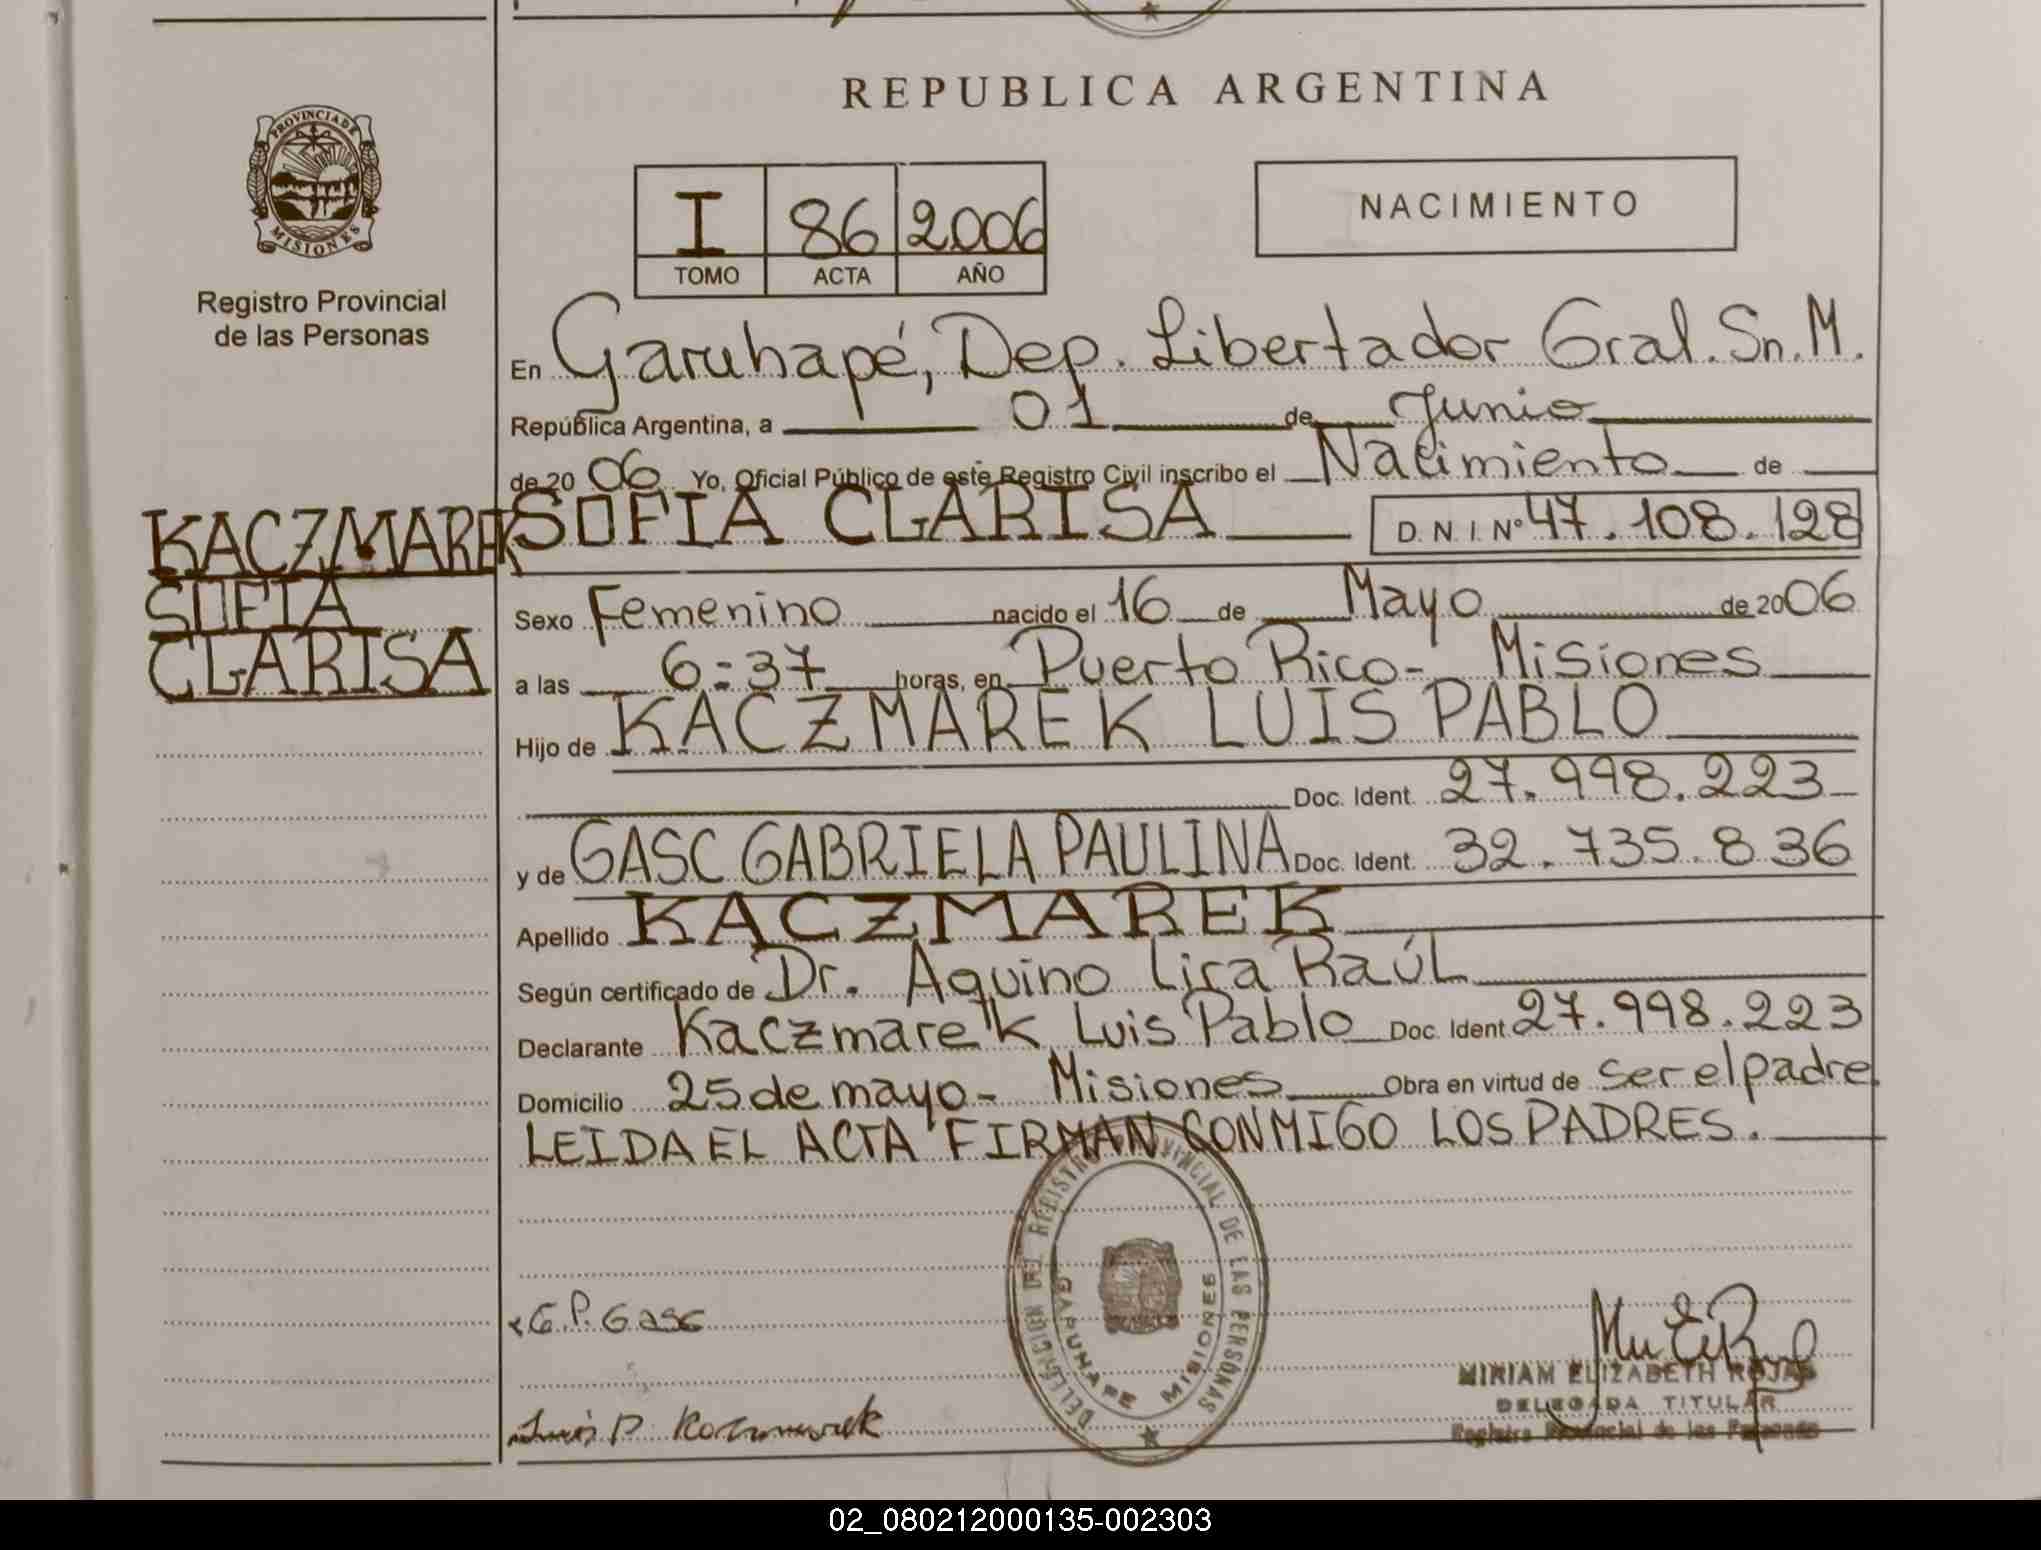 REPUBLICA ARGENTINA
PROVINCIA DE
MISIONES
Registro Provincial
de las Personas
I 86 2006
TOMO ACTA AÑO
NACIMIENTO
En Garuhapé, Dep. Libertador Gral. Sn. M.
República Argentina, a 01 de Junio
de 20 06 Yo, Oficial Público de este Registro Civil inscribo el Nacimiento de
KACZMAREK
SOFIA
CLARISA
SOFIA CLARISA D. N. I. Nº 47.108.128
Sexo Femenino nacido el 16 de Mayo de 2006
a las 6:37 horas, en Puerto Rico- Misiones
Hijo de KACZMAREK LUIS PABLO
Doc. Ident. 27.998.223
y de GASC GABRIELA PAULINA Doc. Ident. 32.735.836
Apellido KACZMAREK
Según certificado de Dr. Aquino Lira Raúl
Declarante Kaczmarek Luis Pablo Doc. Ident. 27.998.223
Domicilio 25 de mayo- Misiones Obra en virtud de ser el padre
LEIDA EL ACTA FIRMAN CONMIGO LOS PADRES.
DELEGACION DEL REGISTRO PROVINCIAL DE LAS PERSONAS
GARUHAPE MISIONES
G. P. Gasc
Luis P. Kaczmarek
MIRIAM ELIZABETH ROJAS
DELEGADA TITULAR
Registro Provincial de las Personas
02_080212000135-002303